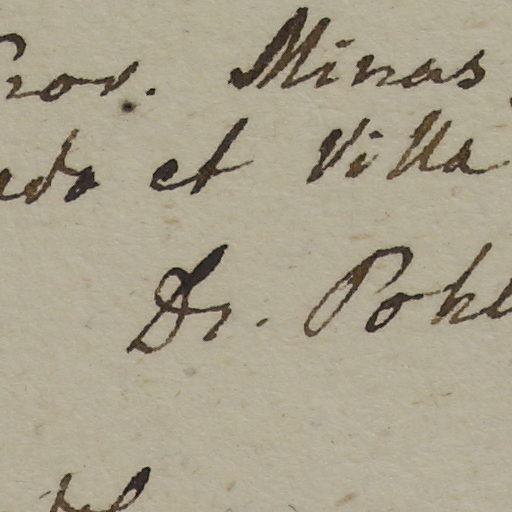 Prov. Minas
et Villa
Dr. Pohl